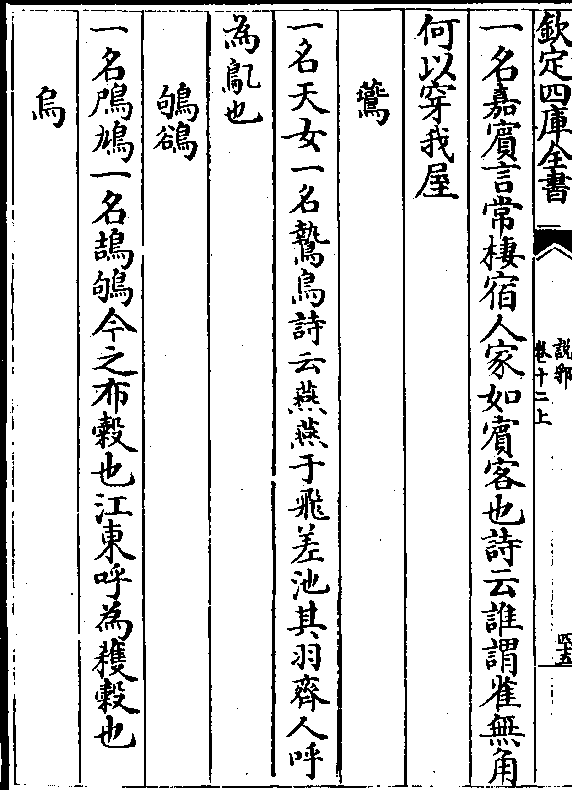 欽定四庫全書
說郛
卷十二上
四五
一名嘉賓言常棲宿人家如賓客也詩云誰謂雀無角
何以穿我屋
鷰
一名天女一名鷙鳥詩云燕燕于飛差池其羽齊人呼
為鳦也
鳲鵒
一名鳲鳩一名鴶鵴今之布穀也江東呼為穫穀也
烏